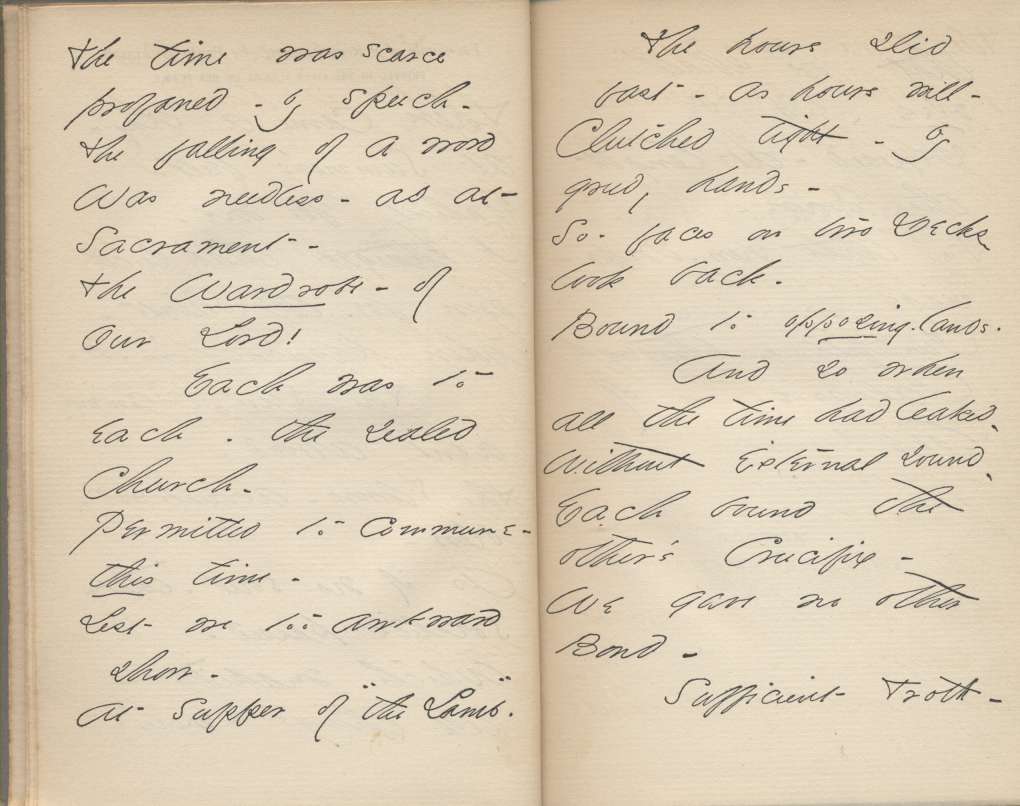 The time was scarce
profaned - by speech -
The falling of a word
Was needless - as at -
Sacrament -
The Wardrobe - of
Our Lord!
Each was to
Each . the sealed
Church -
Permitted to commune -
this time -
Lest we too awkward
show -
At Supper of "the Lamb".
The hours slid
fast - as hours will -
Clutched tight - by
greedy hands -
So - faces on two Decks
look back -
Bound to opposing lands.
And so when
all the time had leaked,
Without external sound,
Each bound the
other's Crucifix -
We gave no other
Bond -
Sufficient Troth -